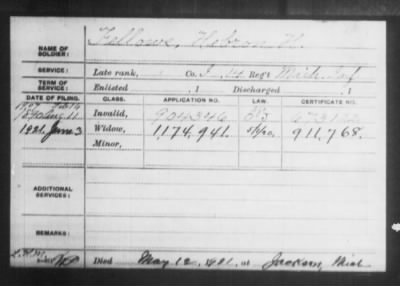 NAME OF SOLDIER: Fellows, Hebron H.
SERVICE: Late rank, Co. I, Reg't Mich. Inf
TERM OF SERVICE: Enlisted , 1 Discharged , 1
DATE OF FILING. CLASS. APPLICATION NO. LAW. CERTIFICATE NO.
Invalid, 904346
1921, June 3 Widow, 1,174,941. 911,768.
Minor,
ADDITIONAL SERVICES:
REMARKS:
Died May 12, 1921, at Jackson, Mich